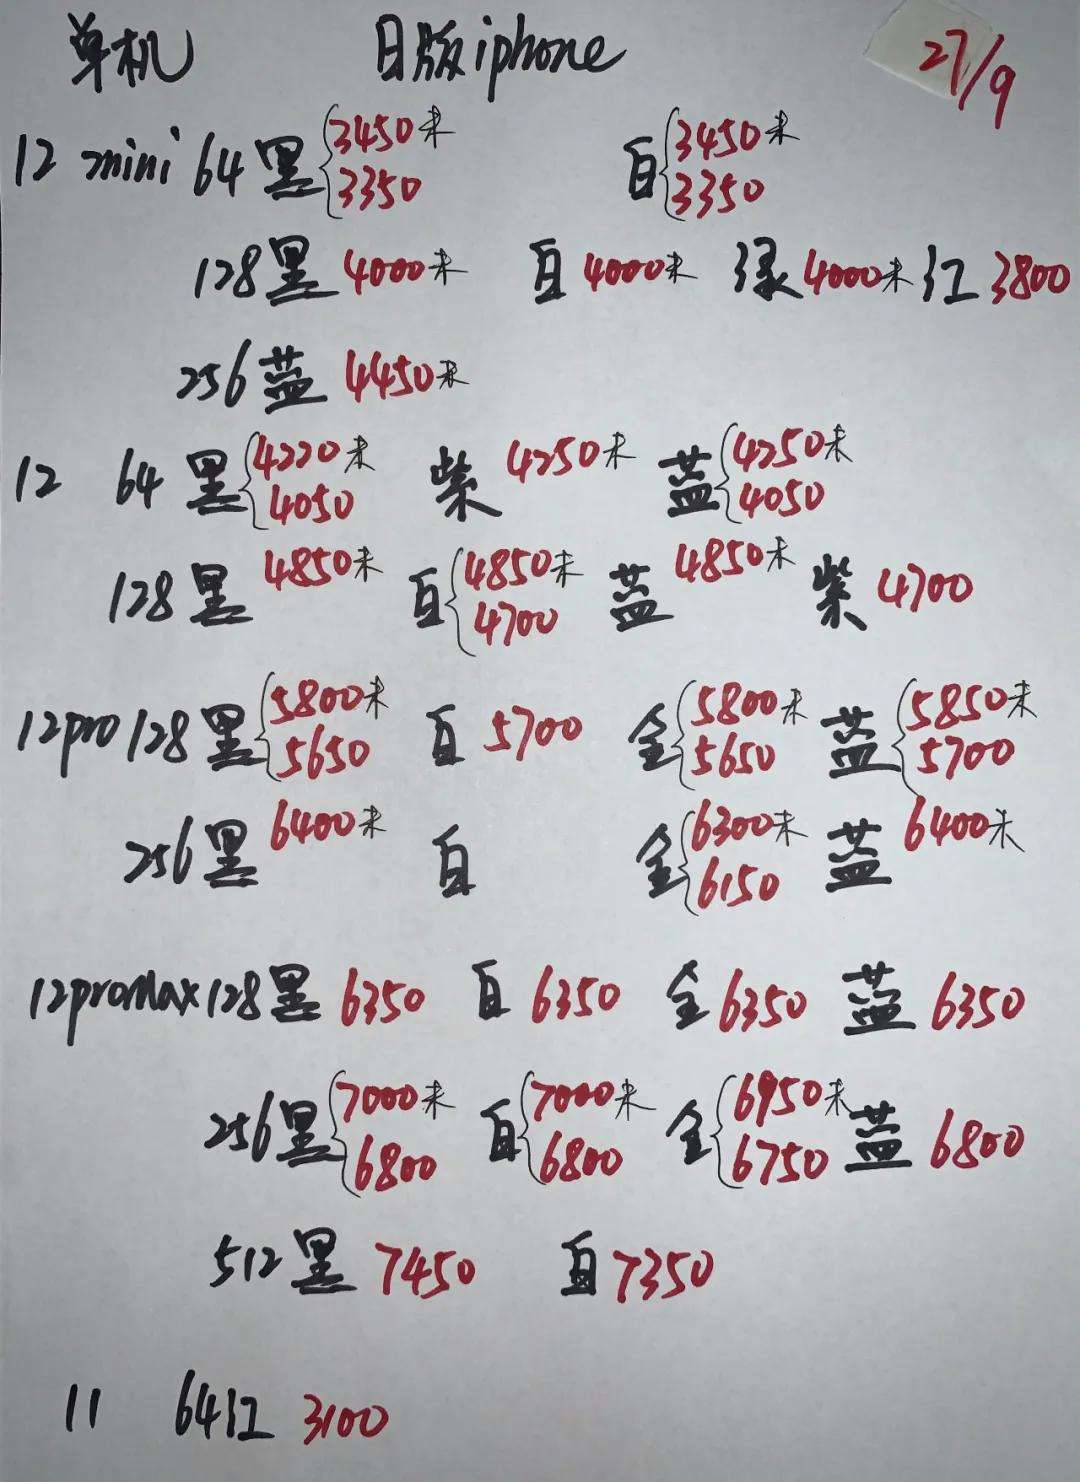 单机 日版iphone 27/9
12 mini 64黑{3450未 3350 白{3450未 3350
128黑 4000未 白 4000未 绿 4000未 红 3800
256蓝 4450未
12 64黑{4220未 4050 紫 4250未 蓝{4250未 4050
128黑 4850未 白{4850未 4700 蓝 4850未 紫 4700
12pro 128黑{5800未 5650 白 5700 金{5800未 5650 蓝{5850未 5700
256黑 6400未 白 金{6300未 6150 蓝 6400未
12promax 128黑 6350 白 6350 金 6350 蓝 6350
256黑{7000未 6800 白{7000未 6800 金{6950未 6750 蓝 6800
512黑 7450 白 7350
11 64红 3100